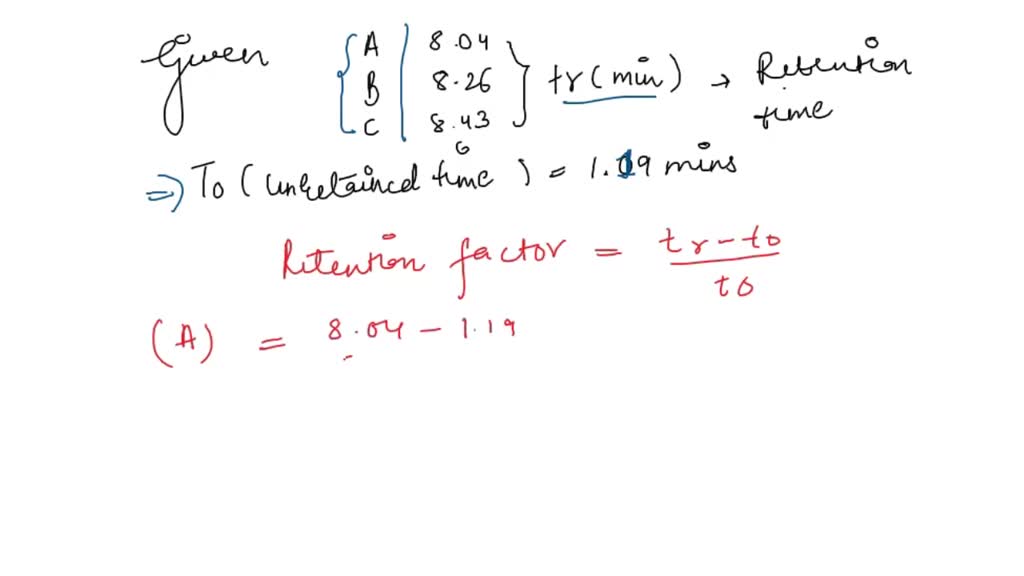 Given { A | 8.04 } tr (min) → Retention time
B | 8.26
C | 8.43
6
⇒ To (unretained time) = 1.19 mins
Retention factor = tr - to / to
(A) = 8.04 - 1.19